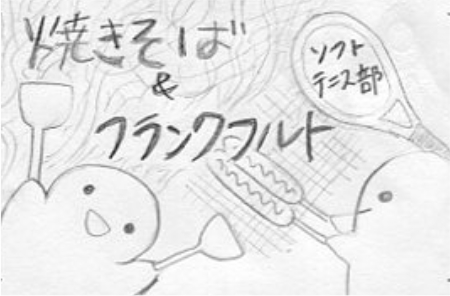 焼きそば
&
フランクフルト
ソフト
テニス部